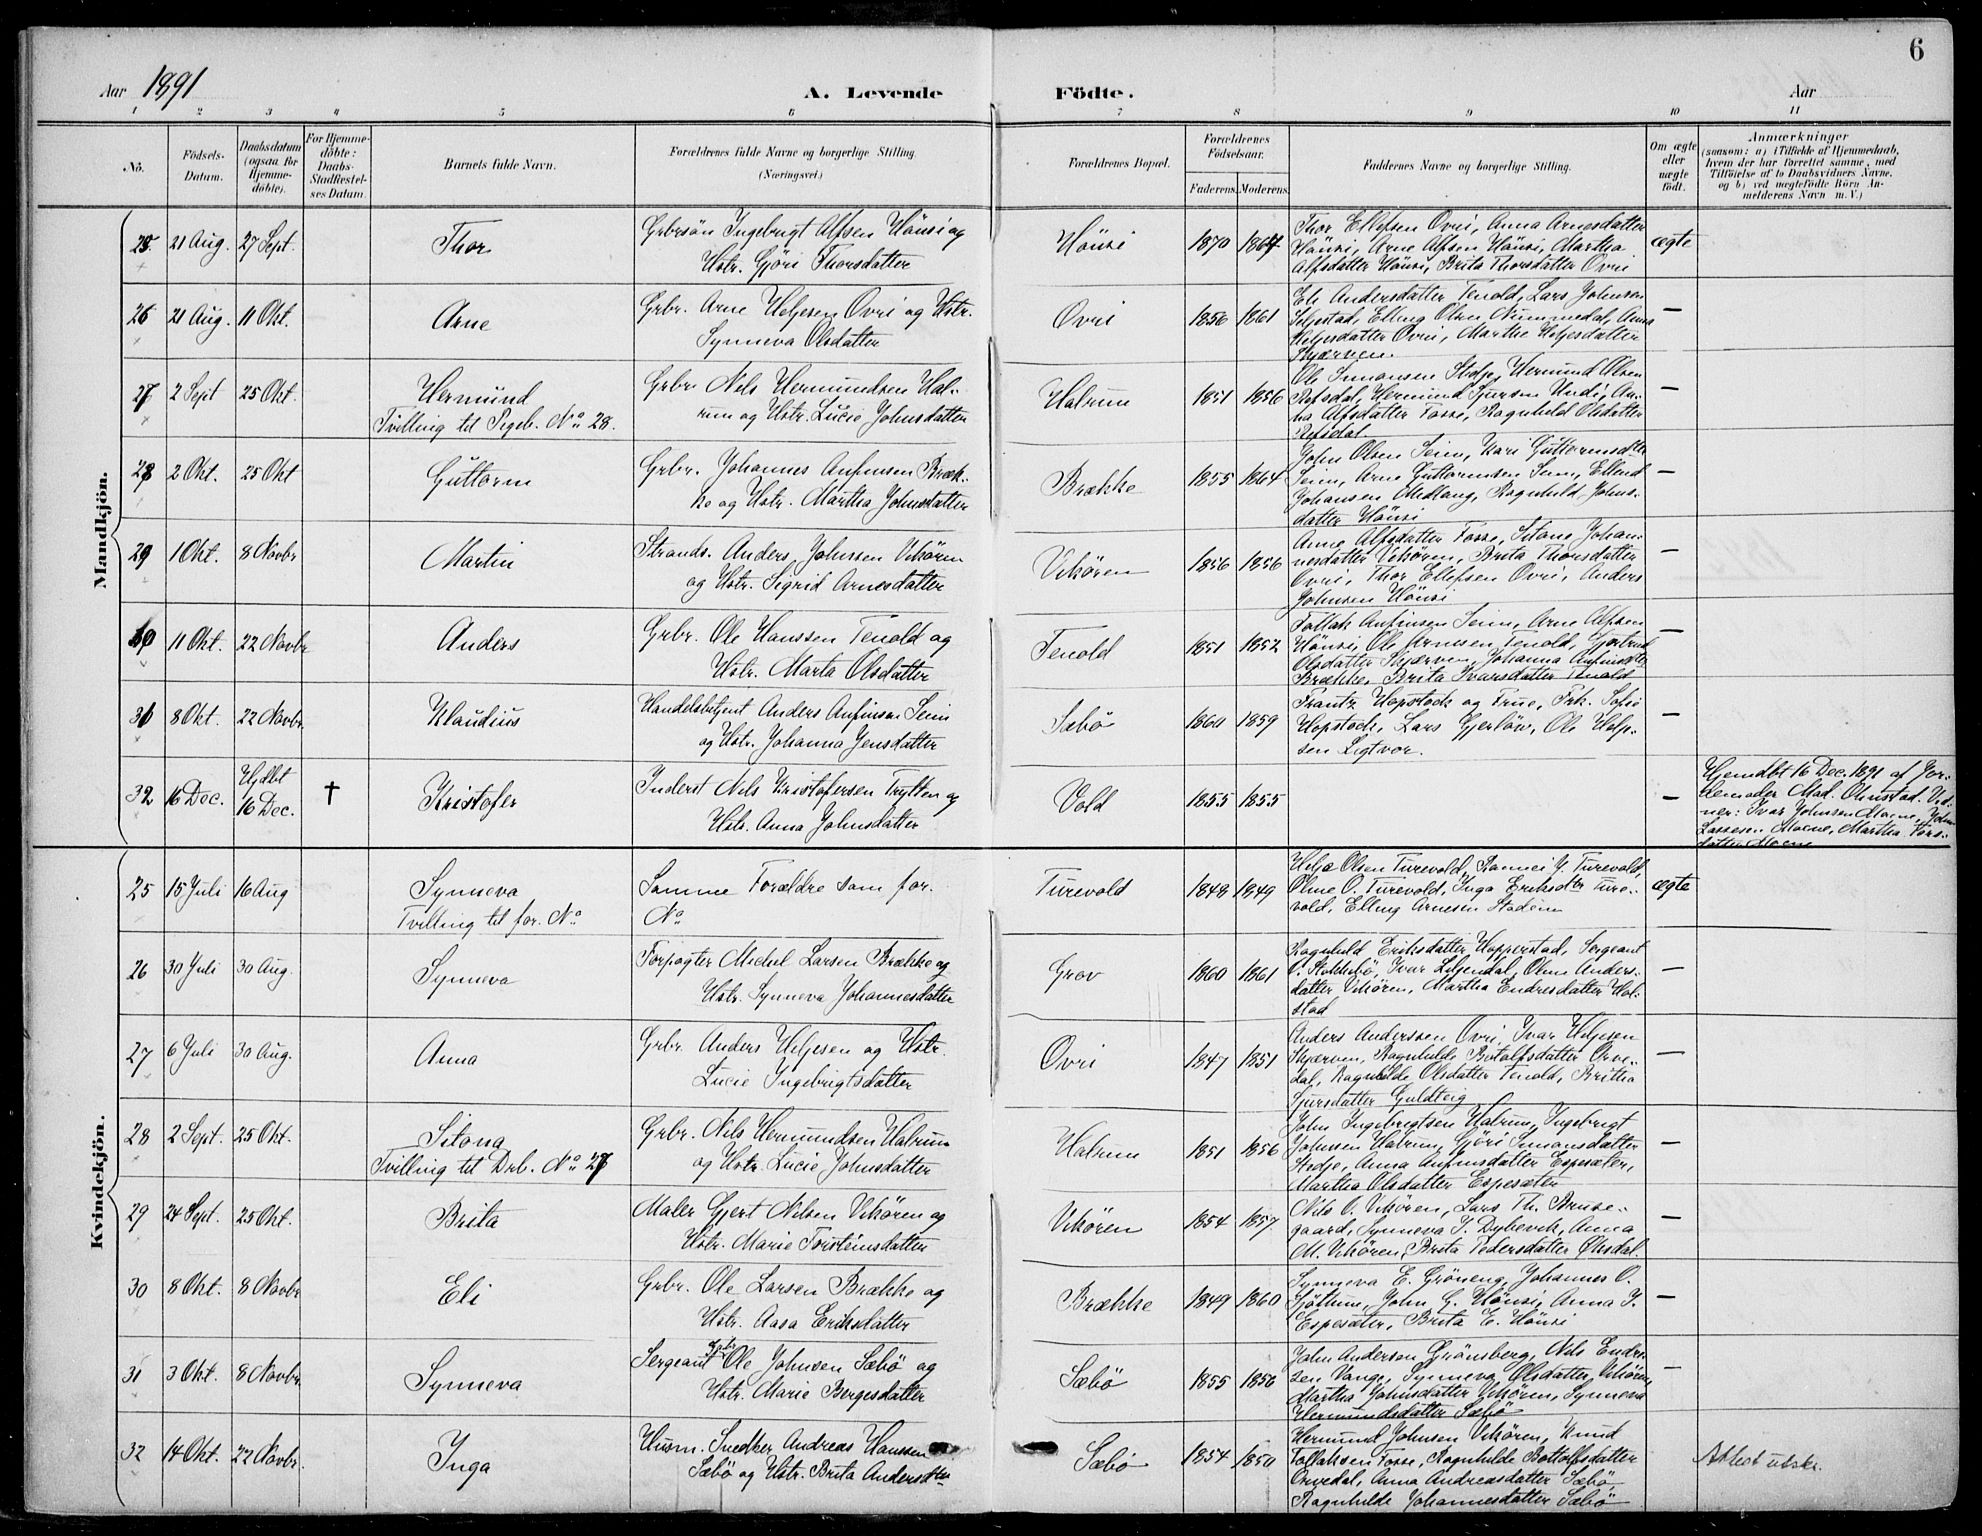 6
Aar 1891
A. Levende Födte.
Aar
1 2 3 4 5 6 7 8 9 10 11
No.
Födsels-Datum.
Daabsdatum (ogsaa for Hjemme-döbte).
For Hjemme-döbte: Daabs-Stadfæstel-ses Datum.
Barnets fulde Navn.
Forældrenes fulde Navne og borgerlige Stilling. (Næringsvei.)
Forældrenes Bopæl.
Forældrenes Födselsaar.
Faderens. Moderens.
Faddernes Navne og borgerlige Stilling.
Om ægte eller uægte födt.
Anmærkninger
(saasom: a) i Tilfælde af Hjemmedaab,
hvem der har forrettet samme, med
Tilföielse af to Daabsvidners Navne,
og b) ved uægtefödte Börn An-
melderens Navn m. V.)
Mandkjön.
25 21 Aug. 27 Sept. Thor
Grbrsön Ingebrigt Alfsen Hönsi og
Hstr. Gjöri Thorsdatter
Hönsi 1870 1867
Thor Ellefsen Ovri, Anna Arnesdatter
Hönsi, Arne Alfsen Hönsi, Martha
Alfsdatter Hönsi, Brita Thorsdatter Ovri
ægte
26 21 Aug. 11 Okt. Arne
Grbr. Arne Heljesen Ovri og Hstr.
Synneva Olsdatter
Ovri 1856 1861
Eli Andersdatter Tenold, Lars Johnsen
Seljestad, Elling Olsen Nummedal, Anna
Heljesdatter Ovri, Martha Heljesdatter
Skjærven.
—
27 2 Sept 25 Okt. Hermund
Tvilling til Pigeb. No 28.
Grbr. Nels Hermundsen Hal-
rum og Hstr. Lucie Johnsdatter
Halrum 1851 1856
Ole Simonsen Stedje, Hermund Olsen
Refsdal, Hermund Sjursen Undi, An-
na Alfsdatter Fosse, Ragnhild Olsdatter
Refsdal
—
28 2 Okt. 25 Okt Guttorm
Grbr. Johannes Anfinsen Bræk-
ke og Hstr. Martha Johnsdatter
Brække 1855 1864
John Olsen Seim, Kari Guttormsdtr
Seim, Arne Guttormsen Seim, Ellend
Johansen Midlang, Ragnhild Johns-
datter Hönsi
—
29 1 Okt. 8 Novbr Martin
Strands. Anders Johnsen Vikören
og Hstr. Sigrid Arnesdatter
Vikören 1856 1856
Anne Alfsdatter Fosse, Sitone Johan-
nesdatter Vikören, Brita Thorsdatter
Ovri, Thor Ellefsen Ovri, Anders
Johnsen Hönsi
—
30 11 Okt. 22 Novbr Anders
Grbr. Ole Hanssen Tenold og
Hstr. Marta Olsdatter
Tenold 1851 1852
Follak Anfinsen Seim, Arne Alfsen
Hönsi, Ole Arnesen Tenold, Gjertrud
Olsdatter Skjærven, Johanna Anfinsdtr
Brække, Brita Ivarsdatter Tenold
—
31 8 Okt. 22 Novbr. Klaudius
Handelsbetjent Anders Anfinsen Seim
og Hstr. Johanna Jensdatter
Sæbö 1860 1859
Frantz Hopstock og Frue, Frk. Sofie
Hopstock, Lars Gjerlöw, Ole Helje-
sen Ligtvor.
—
32 16 Dec. Hjdbt 16 Dec. † Kristofer
Inderst Nels Kristofersen Trytten og
Hstr. Anna Johnsdatter
Vold 1855 1855
—
Hjemdbt 16 Dec. 1891 af Jor-
demoder Mad. Ohnstad. Vid-
ner: Ivar Johnsen Moene, John
Lassesen Moene, Martha Tors-
datter Moene
Kvindekjön.
25 15 Juli 16 Aug Synneva
Tvilling til for. No
Samme Forældre som for.
No
Turevold 1848 1849
Helje Olsen Turevold, Rannei J. Turevold,
Oline O. Turevold, Inga Eriksdtr Ture-
vold, Elling Arnesen Stadem
ægte
26 30 Juli 30 Aug. Synneva
Forpagter Michel Larsen Brække og
Hstr. Synneva Johannesdatter
Grov 1860 1861
Ragnhild Eriksdatter Hopperstad, Sergeant
O. Stokkebö, Ivar Liljendal, Oline Anders-
datter Vikören, Martha Endresdatter Hol-
stad
—
27 6 Juli 30 Aug. Anna
Grbr. Anders Heljesen og Hstr.
Lucie Ingebrigtsdatter
Ovri 1847 1851
Anders Anderssen Ovri, Ivar Heljesen
Skjærven, Ragnhilde Botolfsdatter Orve-
dal, Ragnhilde Olsdatter Tenold, Britha
Sjursdatter Guldteig
—
28 2 Sept. 25 Okt. Sitona
Tvilling til Drb. No 27
Grbr. Nils Hermundsen Halrum
og Hstr. Lucie Johnsdatter
Halrum 1851 1856
John Ingebrigtsen Halrum, Ingebrigt
Johnsen Halrum, Gjöri Simonsdatter
Stedje, Anna Anfinsdatter Espesæter,
Martha Olsdatter Espesæter
—
29 24 Sept. 25 Okt. Brita
Maler Gjert Nilsen Vikören og
Hstr. Marie Torsteinsdatter
Vikören 1854 1857
Nils O. Vikören, Lars Th. Bruse-
gaard, Synneva J. Dybevik, Anna
M. Vikören, Brita Pedersdatter Öksdal.
—
30 8 Okt. 8 Novbr Eli
Grbr. Ole Larsen Brække og
Hstr. Aasa Eriksdatter
Brække 1849 1860
Synneva E. Gröneng, Johannes O.
Sjöttum, John G. Hönsi, Anna J.
Espesæter, Brita E. Hönsi
—
31 3 Okt. 8 Novbr. Synneva
Sergeant Grbr Ole Johnsen Sæbö og
Hstr. Marie Bergesdatter
Sæbö 1855 1856
John Andersen Grönsberg, Nils Endre-
sen Vange, Synneva Olsdatter Vikören,
Martha Johnsdatter Vikören, Synneva
Hermundsdatter Sæbö
—
32 14 Okt. 22 Novbr. Inga
Husm. Snedker Andreas Hanssen
Sæbö og Hstr. Brita Andersdtr
Sæbö 1854 1850
Hermund Johnsen Vikören, Knud
Follaksen Fosse, Ragnhilde Bottolfsdatter
Orvedal, Anna Andreasdatter Sæbö,
Ragnhilde Johannesdatter Sæbö
—
Attest utskr.